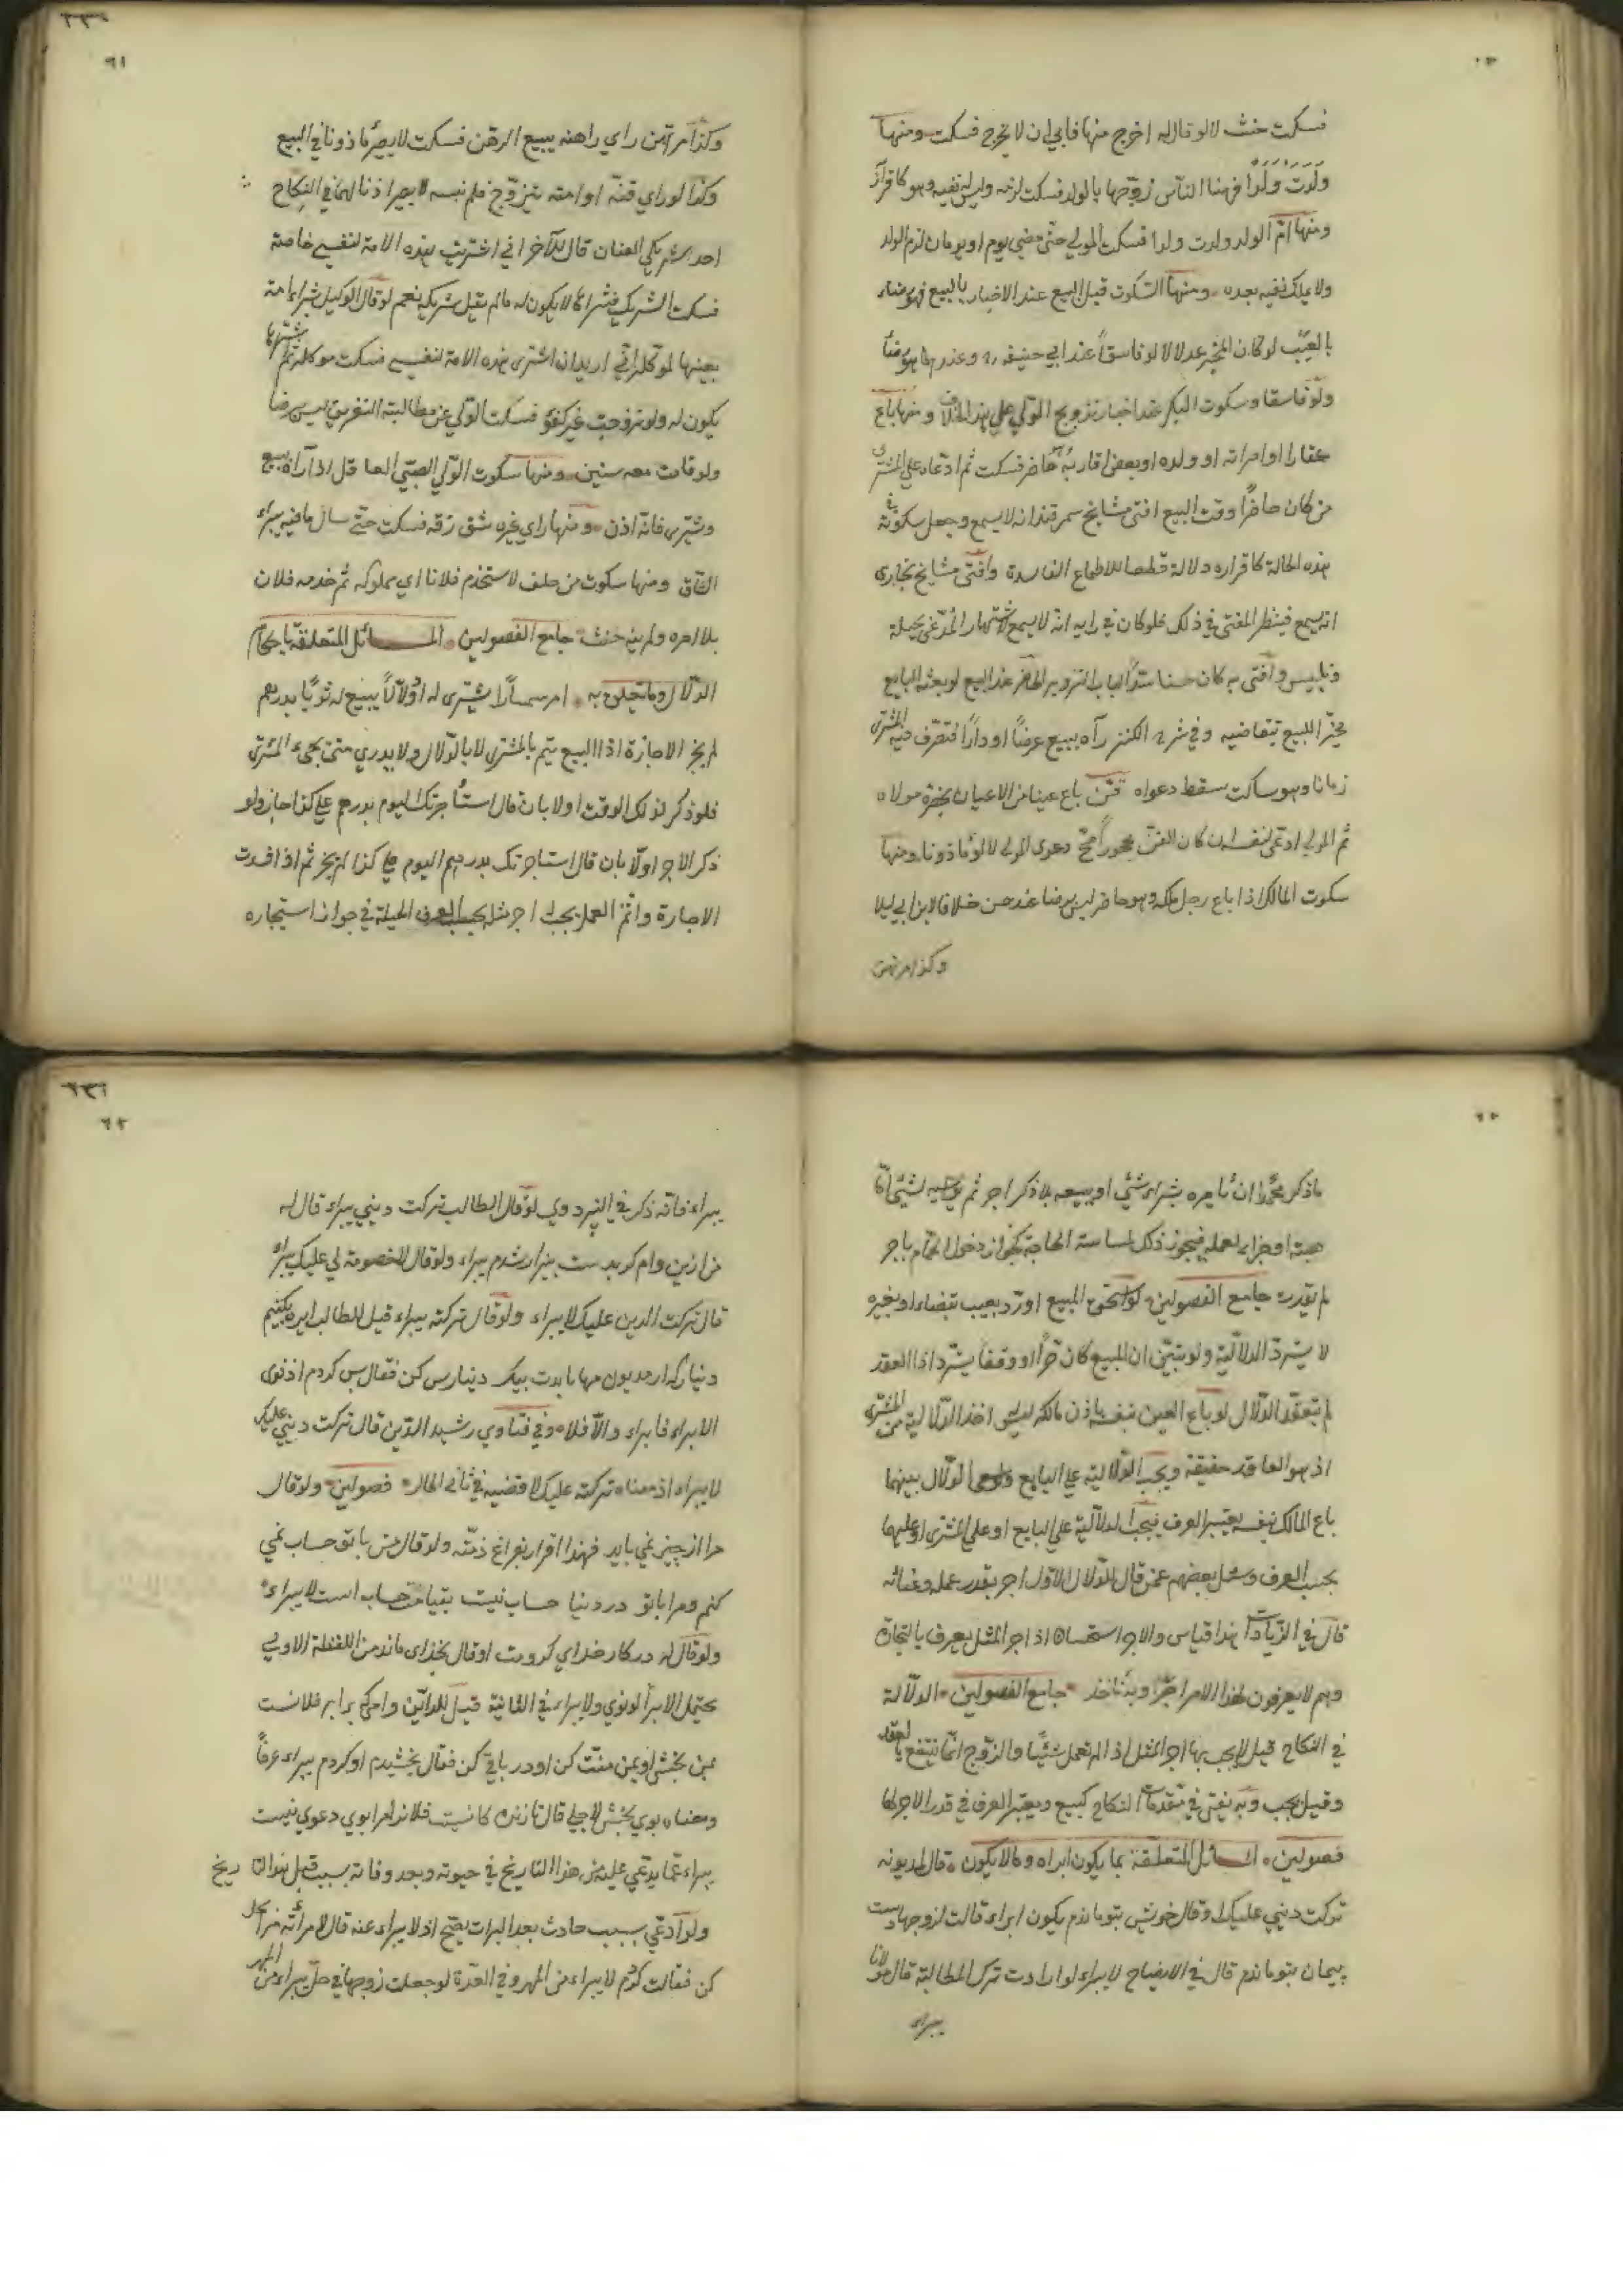 فسكت حنث لا لو قال له اخرج منها فابى ان لا يخرج فسكت ومنها
ولدت ولدا فهنأ الناس زوجها بالولد فسكت لزمه وليس له نفيه وهو كاقرار
ومنها ام الولد ولدت ولدا فسكت المولي حتى مضى يوم او يومان لزم الولد
ولا يملك نفيه بعده ومنها السكوت قبل البيع عند الاخبار بالبيع فهو رضاء
بالعيب لو كان المخبر عدلا لا لو فاسقا عند ابي حنيفه ره وعندهما هو رضاً
ولو فاسقا وسكوت البكر عند اخبار تزويج الولي على هذا الخلاف ومنها باع
عقارا او امراته او ولده او بعض اقاربه حاضر فسكت ثم ادعاه على المشترى
من كان حاضرًا وقت البيع افتى مشايخ سمرقند انه لا يسمع وجعل سكوته في
هذه الحالة كاقراره دلالة قطعا للاطماع الفاسدة وافتى مشايخ بخارى
انه يسمع فينظر المفتى في ذلك فلو كان في رايه انه لا يسمع لاشتهار المدعى بحيلة
وتلبيس وافتى به كان حسنا سدا لباب التزوير الحاضر عند البيع لو بعثه البايع
بخبر البيع بتقاضيه وفي شرح الكنز رآه يبيع عرضًا او دارًا فتصرف فيه المشترى
زمانا وهو ساكت سقط دعواه قن باع عينا من الاعيان بحضرة مولاه
ثم المولى ادعى لنفسه ان كان القن محجورا صح دعوى المولى لا لو ماذونا ومنها
سكوت المالك اذا باع رجل ملكه وهو حاضر ليس برضا عندنا خلافا لابن ابي ليلا
وكذا مرتهن
٦١
وكذا مرتهن راي راهنه يبيع الرهن فسكت لا يصير ماذونا في البيع
وكذا لو راي قنه او امته يتزوج فلم ينهه لا يصير اذنا لهما في النكاح
احد شريكي العنان قال للآخر اني اشتريت هذه الامة لنفسي خاصة
فسكت الشريك فشراها لا يكون له ما لم يقل شريكه نعم لو قال الوكيل بشراء امة
بعينها لموكله اني اريد ان اشترى هذه الامة لنفسي فسكت موكله ثم شراها
يكون له ولو تزوجت غير كفو فسكت الولي عن مطالبة التفريق ليس برضا
ولو قامت معه سنين ومنها سكوت الولي الصبي العاقل اذا رآه يبيع
ويشترى فانه اذن ومنها راي غيره شق زقه فسكت حتى سال ما فيه يبراء
الشاق ومنها سكوت من حلف لا استخدم فلانا اي مملوكه ثم خدمه فلان
بلا امره ولم ينه حنث جامع الفصولين المسائل المتعلقة باحكام
الدلال وما يتعلق به امر سمسارًا يشترى له او دلالاً يبيع له ثوبا بدرهم
لم يجز الاجازة اذ البيع يتم بالمشترى لا بالدلال ولا يدري متى يجيء المشترى
فلو ذكر لذلك الوقت اولا بان قال استأجرتك اليوم بدرهم على كذا جاز ولو
ذكر الاجر اولا بان قال استاجرتك بدرهم اليوم على كذا لم يجز ثم اذا فسدت
الاجارة واتم العمل يجب اجر مثله بحسب العرف الحيلة في جواز استيجاره
ما ذكر محمد ان يامره بشراء شئي او بيعه بلا ذكر اجر ثم يواسيه بشئي اما
هبة او جزاء لعمله فيجوز ذلك لمساسة الحاجة كجواز دخول الحمام باجر
لم يقدر جامع الفصولين لو استحق المبيع او رد بعيب بقضاء او بغيره
لا يسترد الدلالية ولو تبين ان المبيع كان حرا او وقفا يسترد اذ العقد
لم ينعقد الدلال لو باع العين بنفسه باذن مالكه ليس اخذ الدلالية من المشترى
اذ هو العاقد حقيقة ويجب الدلالية على البايع ولو سعى الدلال بينهما
باع المالك بنفسه يعتبر العرف فيجب الدلالية على البايع او على المشترى او عليهما
بحسب العرف وسئل بعضهم عمن قال للدلال الاول اجر بقدر عمله وعنائه
قال في الزيادات هذا قياس والاجر استحسانا اذ اجر المثل يعرف بالتجار
وهم لا يعرفون لهذا الامر اجرًا وبه ناخذ جامع الفصولين الدلالة
في النكاح قيل لا يجب بها اجر المثل اذ لم تعمل شيئا والزوج انما ينتفع بالعقد
وقيل يجب وبه يفتى في مقدمات النكاح كبيع ويعتبر العرف في قدر الاجر لها
فصولين المسائل المتعلقة بما يكون ابراء وما لا يكون قال لمديونه
تركت ديني عليك او قال خويش بتو ماندم يكون ابراء قالت لزوجها دست
پيمان بتو ماندم قال في الايضاح لا يبراء لو ارادت ترك المطالبة قال مولانا
يبراء
٦٢
يبراء فانه ذكر في البزدوي لو قال الطالب تركت ديني يبراء قال له
من ازين وام كه بدست بيزار شدم يبراء ولو قال لا خصومة لي عليك يبراء
قال تركت الدين عليك لا يبراء ولو قال تركته يبراء قيل للطالب
دينار كه از مديون بيك دينار بس كن فقال بس كردم اذ نوى
الابراء فابراء والا فلا وفي فتاوي رشيد الدين قال تركت ديني عليك
لا يبراء اذ معناه تركته عليك لا قضيه في ثاني الحال فصولين ولو قال
مرا از چيز نمي بايد فهذا اقرار بفراغ ذمته ولو قال من با تو حساب نمي
كنم ومرا با تو در دنيا حساب نيست بقيامت حساب است لا يبراء
ولو قال له در كار خداي كردمت او قال بخداى ماندمت اللفظة الاولى
يحتمل الابرأ لو نوي ولا يبراء في الثانية قيل للدائن وامكى برابر فلانست
بمن بخش او بمن هبت كن او در باقي كن فقال بخشيدم او كردم يبراء عرفًا
ومعناه بوي بخش لاجلي قال تا زنده كانست فلانرا مرا بوي دعوي نيست
يبراء عما يدعي عليه من هذا التاريخ في حيوته وبعد وفاته بسبب قبل هذا التاريخ
ولو ادعي بسبب حادث بعد البرات يصح اذ لا يبراء عنه قال لامرأته مرا بحل
كن فقالت كردم لا يبراء من المهر وفي العدة لو جعلت زوجها في حل يبراء من المهر